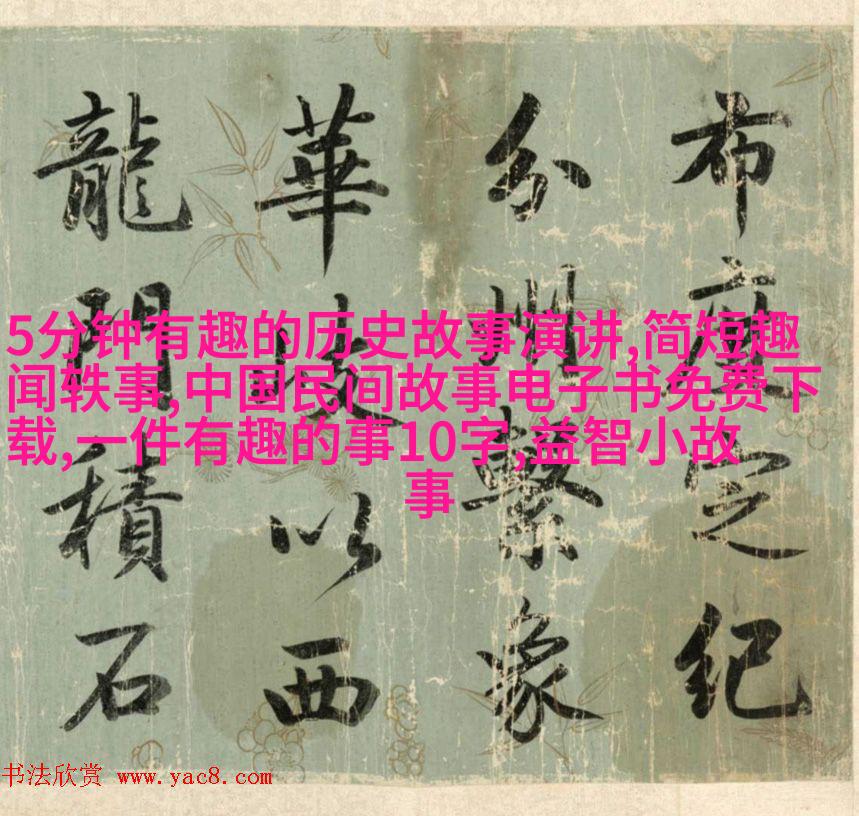 布度定紀
分州繫象
華以西
龍門積石
5分钟有趣的历史故事演讲,简短趣
闻轶事,中国民间故事电子书免费下
载,一件有趣的事10字,益智小故
事
书法欣赏 www.yac8.com